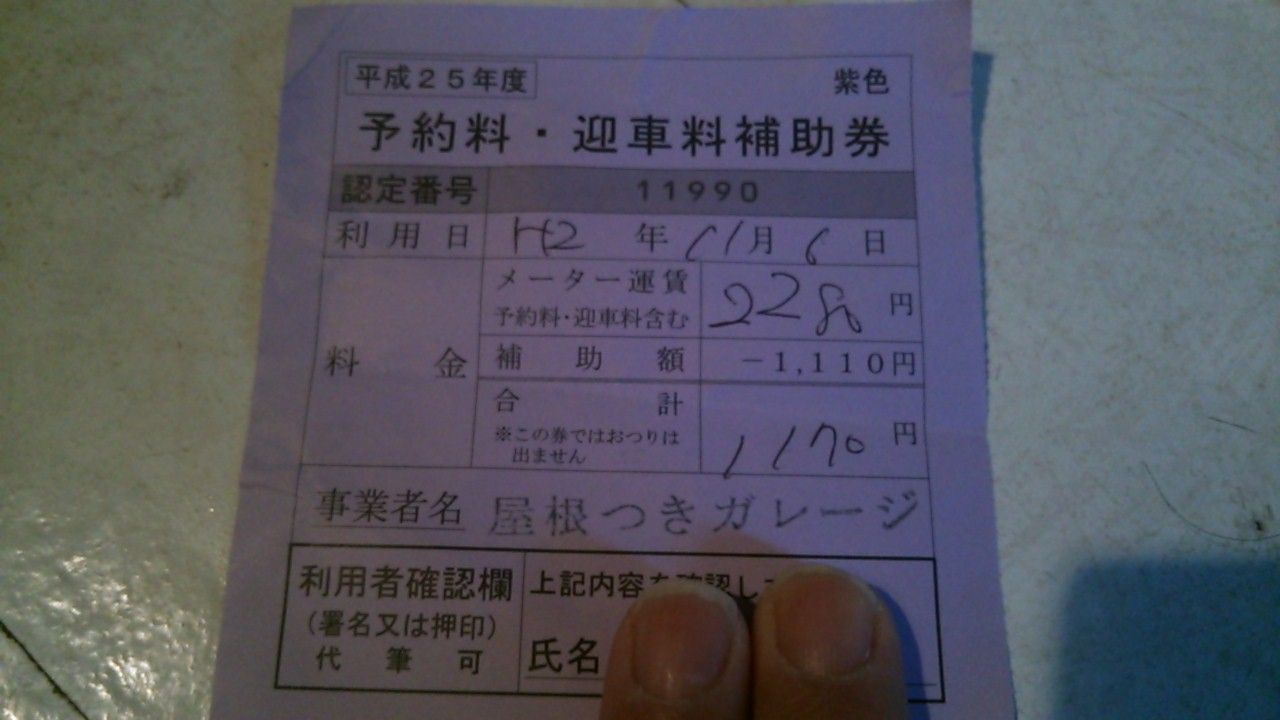 平成25年度 紫色
予約料・迎車料補助券
認定番号 11990
利用日 H2 年 11月 6日
料金
メーター運賃
予約料・迎車料含む
2280円
補助額 -1,110円
合計
※この券ではおつりは
出ません
1170円
事業者名 屋根つきガレージ
利用者確認欄
(署名又は押印)
代筆可
上記内容を確認し
氏名